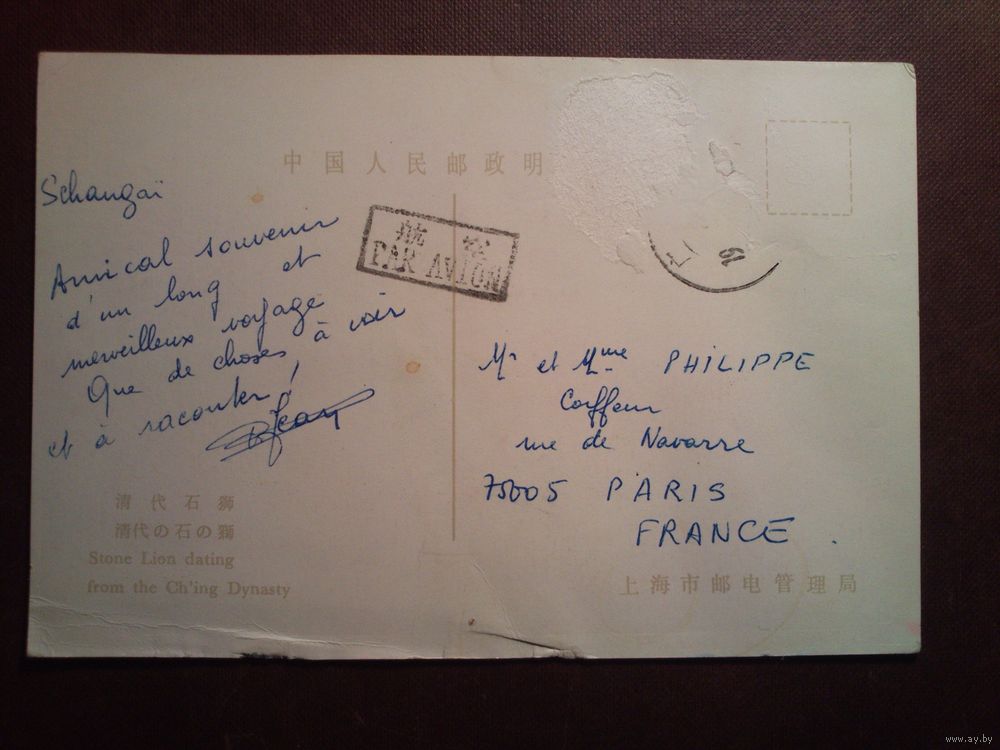 中国人民邮政明
Schangaï
Amical souvenir
d'un long et
merveilleux voyage
Que de choses à voir
et à raconter!
Jean
航空
PAR AVION
19
Mr et Mme PHILIPPE
Coiffeur
rue de Navarre
75005 PARIS
FRANCE.
清代石狮
清代の石の獅
Stone Lion dating
from the Ch'ing Dynasty
上海市邮电管理局
www.ay.by